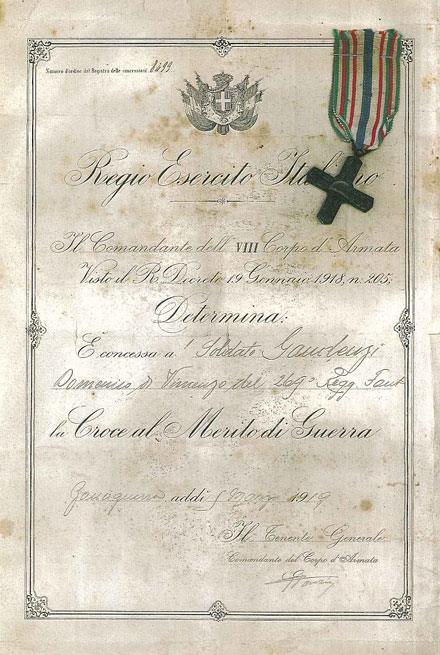 Numero d'ordine del Registro delle concessioni 8499
Regio Esercito Italiano
Il Comandante dell' VIII Corpo d'Armata
Visto il R. Decreto 19 Gennaio 1918, n. 205;
Determina:
È concessa al Soldato Gaudenzi
Domenico di Vincenzo del 269° Regg. Fant
la Croce al Merito di Guerra
addì 1919
Il Tenente Generale
Comandante del Corpo d'Armata